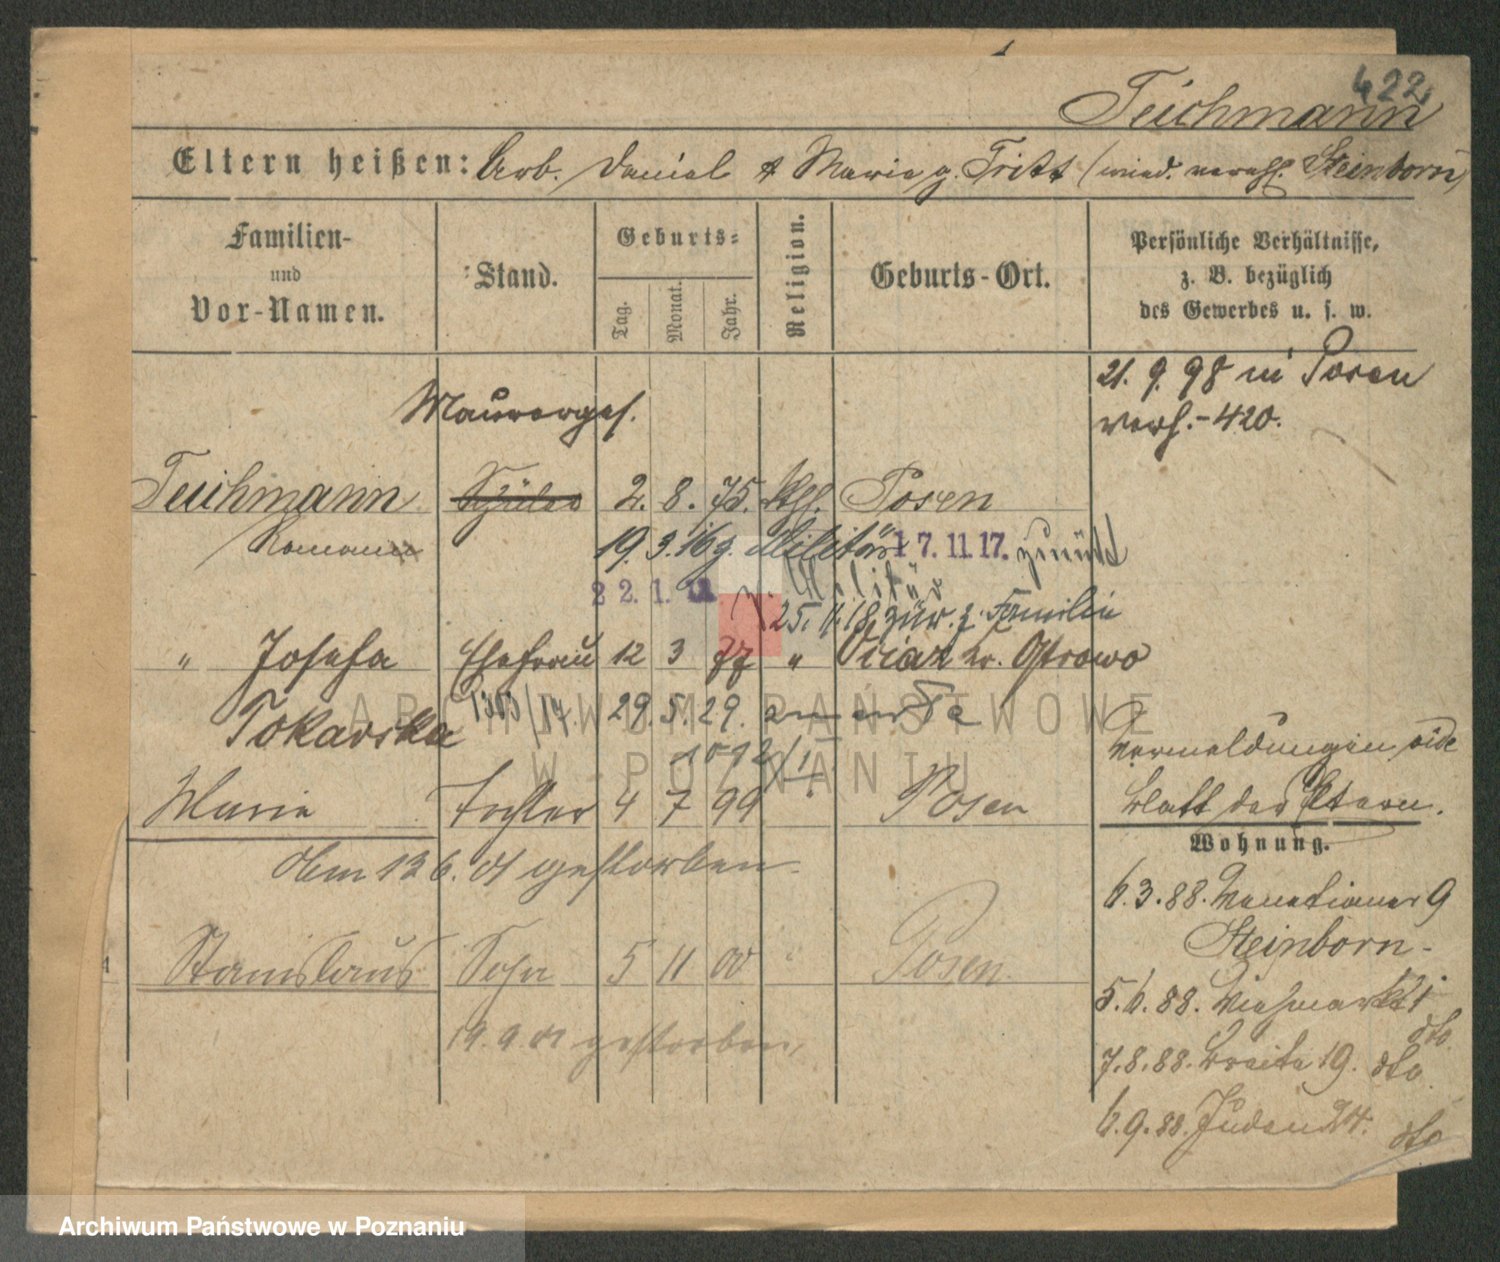 422
Teichmann
Eltern heißen: Arb. Daniel & Maria g. Tritt (wied. verehl. Steinborn)
Familien- und Vor-Namen.
Stand.
Geburts-
Tag. Monat. Jahr.
Religion.
Geburts-Ort.
Persönliche Verhältnisse, z. B. bezüglich des Gewerbes u. s. w.
21. 9. 98 in Posen
verh. - 420.
Maurerges.
Teichmann Schüler 2. 8. 75. kth. Posen
Roman 19. 3. 16 z. Militär 17. 11. 17. zurück
22. 1. z. Militär
25. 11. 18 zur. z. Familie
" Josefa Ehefrau 12 3 77 " Kr. Ostrowo
Tokarska 1303/17. 29. 5. 29.
1092/1
Maria Tochter 4 7 99 " Posen
Vermeldungen vide
Blatt der Eltern.
am 13 6. 01 gestorben
Stanislaus Sohn 5 11 00 " Posen.
19. 9. 01 gestorben
Wohnung.
6. 3. 88. Venetianer 9
Steinborn -
5. 6. 88. Viehmarkt 1
dto
7. 8. 88. Breite 19. dto
6. 9. 88. Juden 24. dto
ARCHIWUM PAŃSTWOWE
W POZNANIU
Archiwum Państwowe w Poznaniu